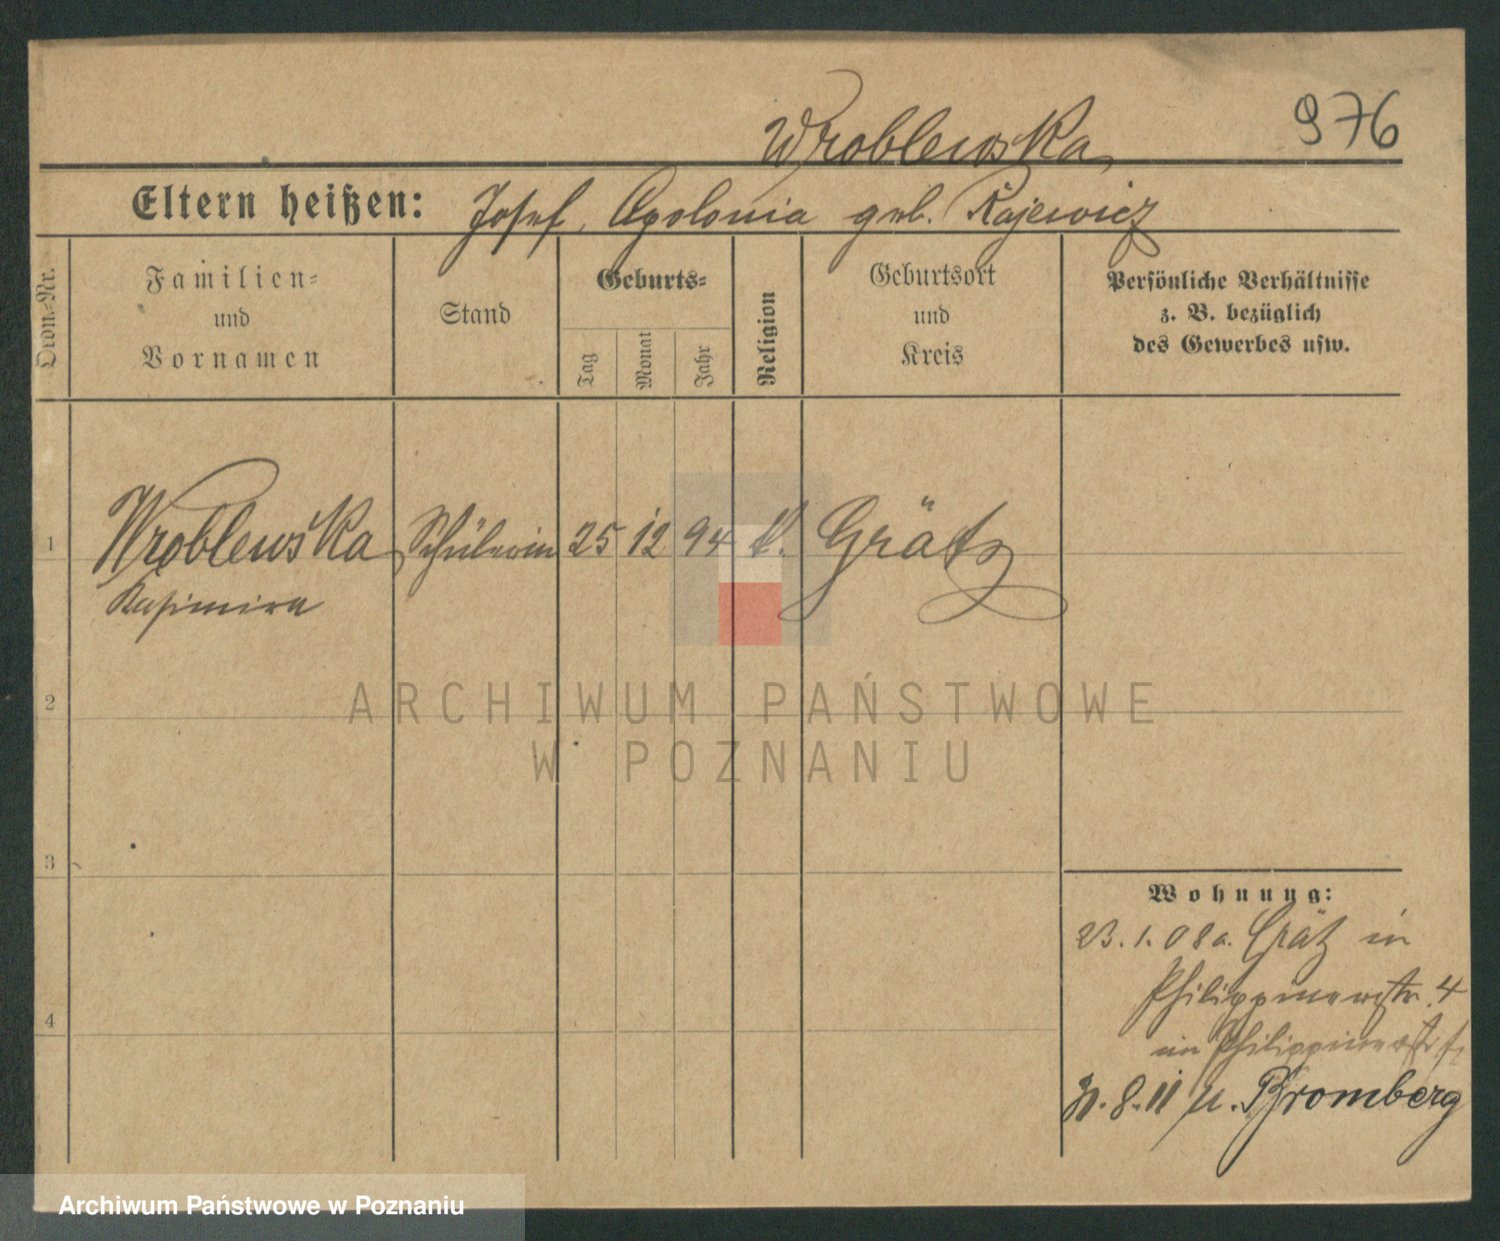 976
Wroblewska
Eltern heißen: Josef, Apolonia geb. Rajewicz
Ordn.-Nr.
Familien-
und
Vornamen
Stand
Geburts-
Tag
Monat
Jahr
Religion
Geburtsort
und
Kreis
Persönliche Verhältnisse
z. B. bezüglich
des Gewerbes usw.
1 Wroblewska Schülerin 25 12 94 k. Grätz
Kasimira
2
3
4
Wohnung:
23.1.08 a. Grätz in
Philippinenstr. 4
in Philippinenstr.
8.11 n. Bromberg
ARCHIWUM PAŃSTWOWE
W POZNANIU
Archiwum Państwowe w Poznaniu